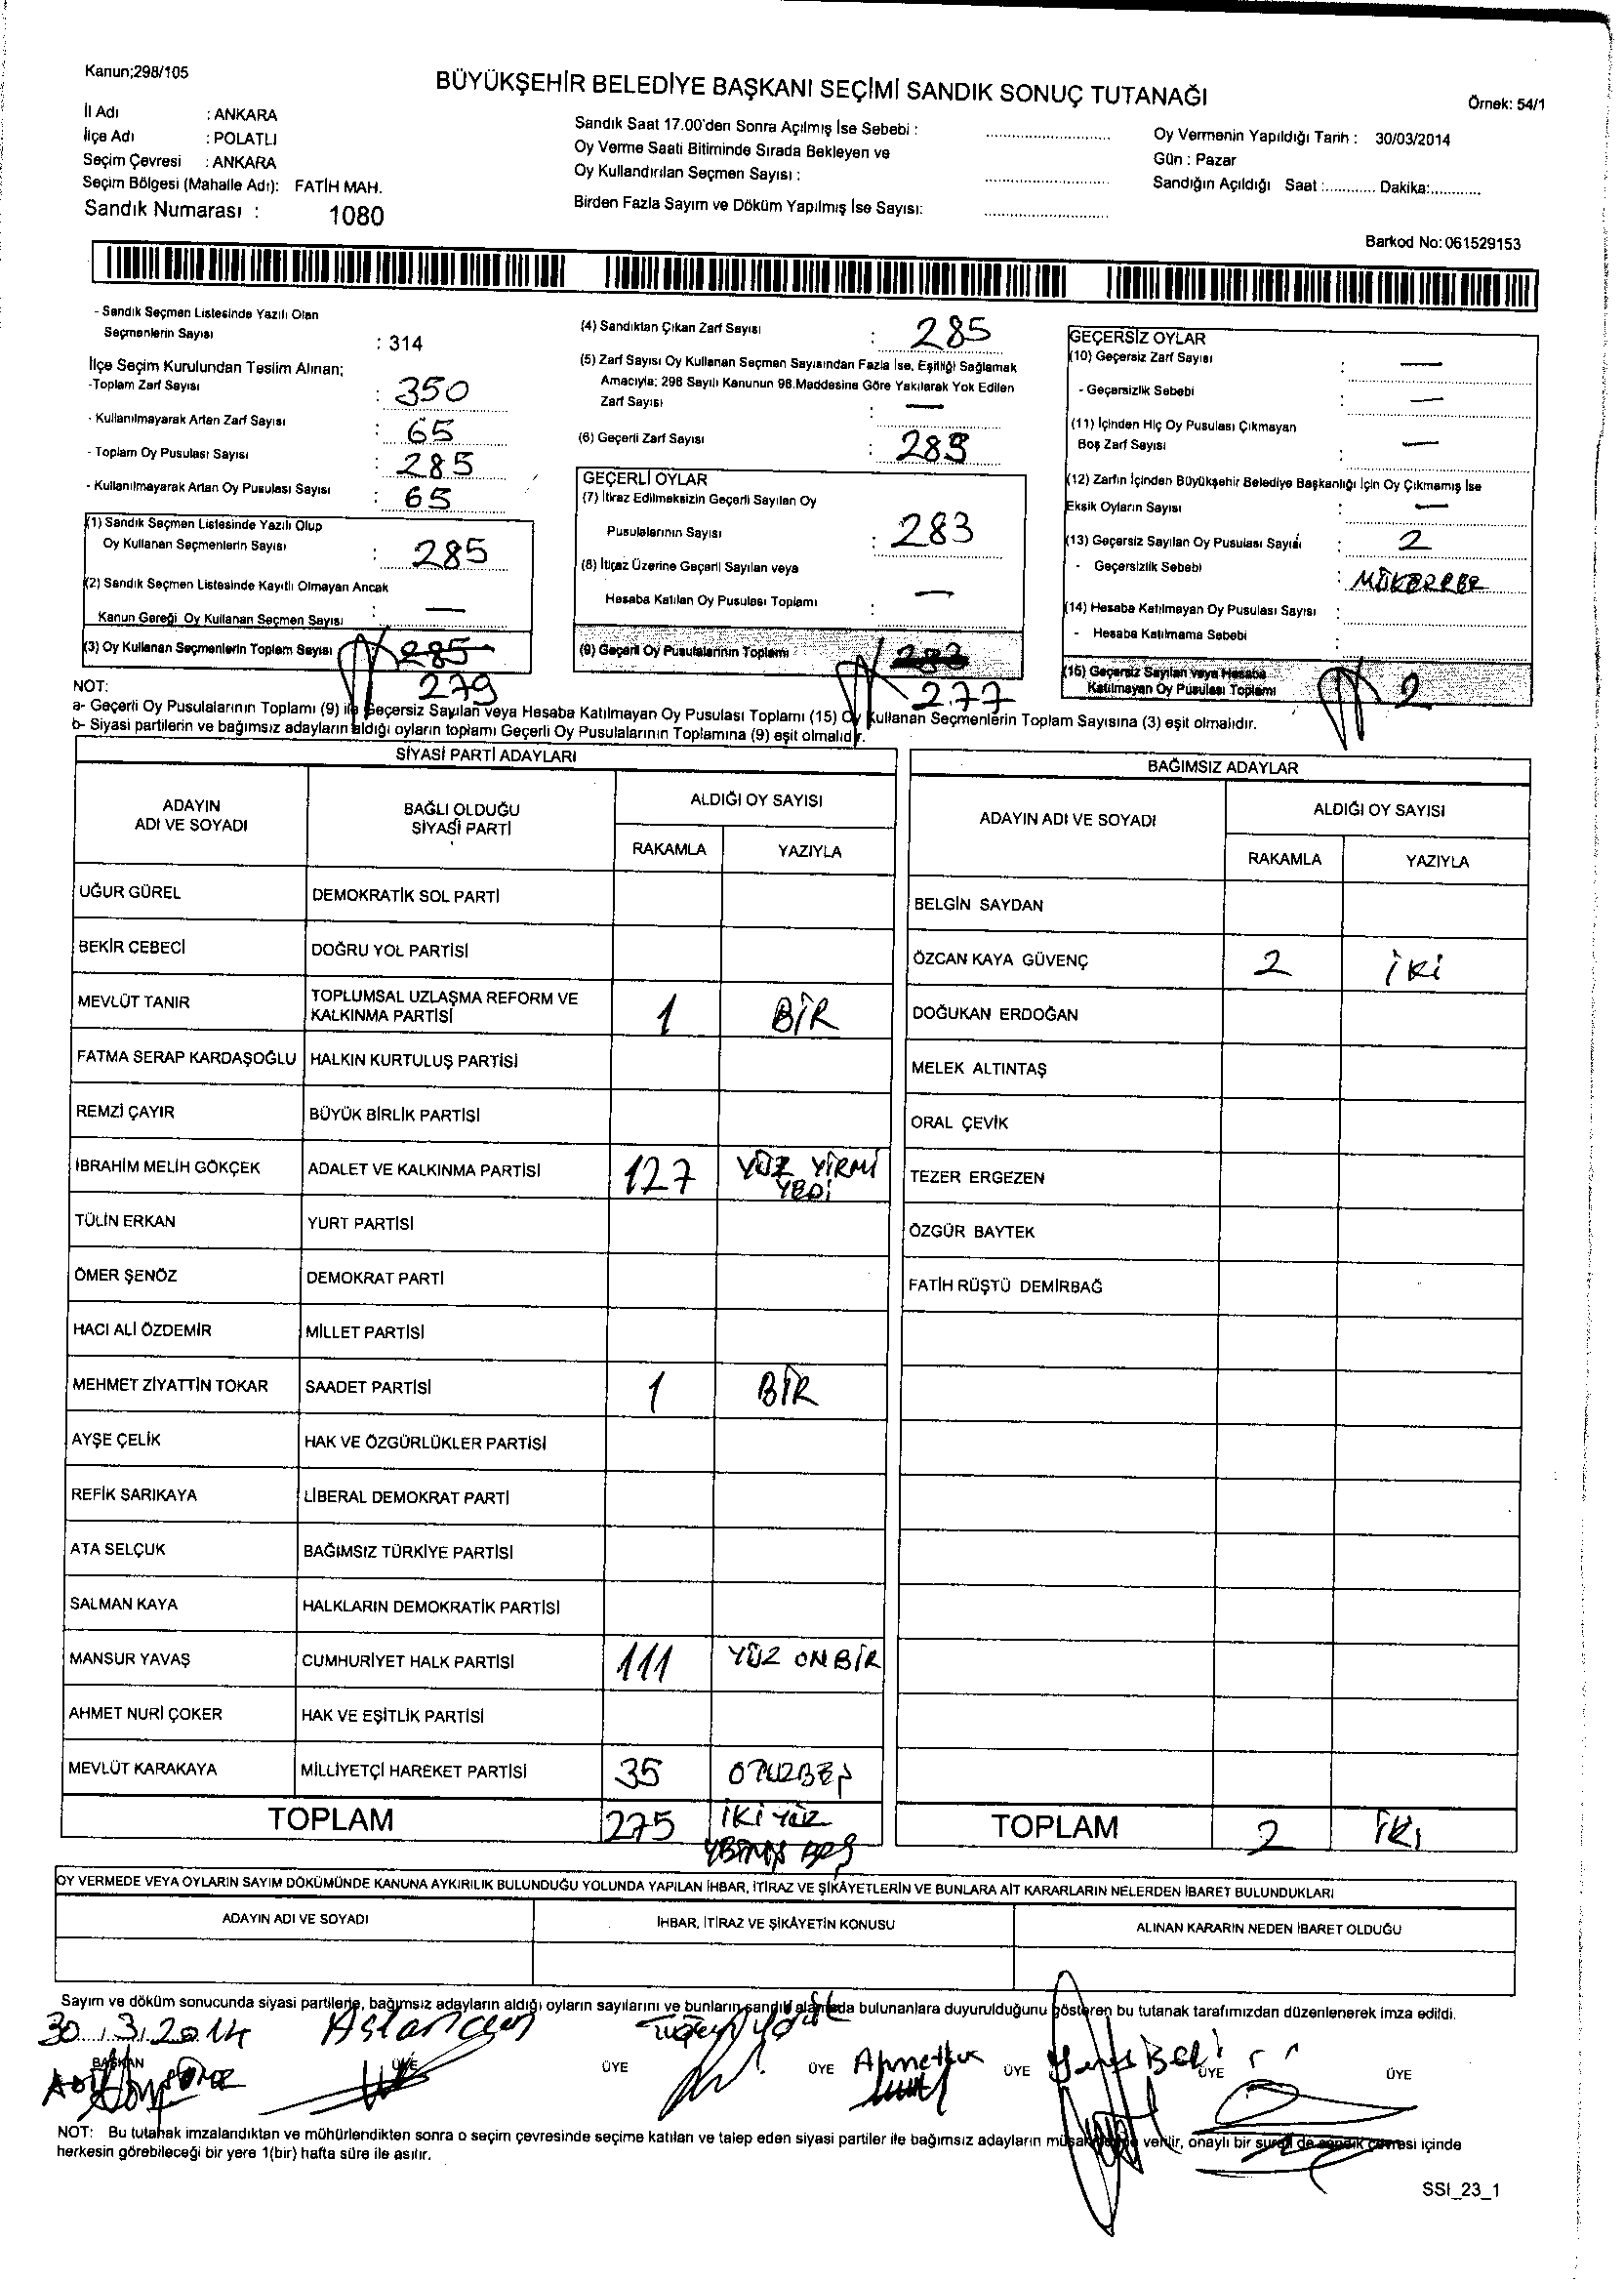 Kanun;298/105
BÜYÜKŞEHİR BELEDİYE BAŞKANI SEÇİMİ SANDIK SONUÇ TUTANAĞI
Örnek: 54/1
İl Adı : ANKARA
İlçe Adı : POLATLI
Seçim Çevresi : ANKARA
Seçim Bölgesi (Mahalle Adı): FATİH MAH.
Sandık Numarası : 1080
Sandık Saat 17.00'den Sonra Açılmış İse Sebebi :
Oy Verme Saati Bitiminde Sırada Bekleyen ve
Oy Kullandırılan Seçmen Sayısı :
Birden Fazla Sayım ve Döküm Yapılmış İse Sayısı:
Oy Vermenin Yapıldığı Tarih : 30/03/2014
Gün : Pazar
Sandığın Açıldığı Saat :............ Dakika:............
Barkod No: 061529153
- Sandık Seçmen Listesinde Yazılı Olan
Seçmenlerin Sayısı : 314
İlçe Seçim Kurulundan Teslim Alınan;
-Toplam Zarf Sayısı : 350
- Kullanılmayarak Artan Zarf Sayısı : 65
- Toplam Oy Pusulası Sayısı : 285
- Kullanılmayarak Artan Oy Pusulası Sayısı : 65
(1) Sandık Seçmen Listesinde Yazılı Olup
Oy Kullanan Seçmenlerin Sayısı : 285
(2) Sandık Seçmen Listesinde Kayıtlı Olmayan Ancak
Kanun Gereği Oy Kullanan Seçmen Sayısı : —
(3) Oy Kullanan Seçmenlerin Toplam Sayısı 285
279
(4) Sandıktan Çıkan Zarf Sayısı : 285
(5) Zarf Sayısı Oy Kullanan Seçmen Sayısından Fazla İse, Eşitliği Sağlamak
Amacıyla; 298 Sayılı Kanunun 98.Maddesine Göre Yakılarak Yok Edilen
Zarf Sayısı : —
(6) Geçerli Zarf Sayısı : 285
GEÇERLİ OYLAR
(7) İtiraz Edilmeksizin Geçerli Sayılan Oy
Pusulalarının Sayısı : 283
(8) İtiraz Üzerine Geçerli Sayılan veya
Hesaba Katılan Oy Pusulası Toplamı : —
(9) Geçerli Oy Pusulalarının Toplamı 283
277
GEÇERSİZ OYLAR
(10) Geçersiz Zarf Sayısı : —
- Geçersizlik Sebebi : —
(11) İçinden Hiç Oy Pusulası Çıkmayan
Boş Zarf Sayısı : —
(12) Zarfın İçinden Büyükşehir Belediye Başkanlığı İçin Oy Çıkmamış İse
Eksik Oyların Sayısı : —
(13) Geçersiz Sayılan Oy Pusulası Sayısı : 2
- Geçersizlik Sebebi : MÜKERRER
(14) Hesaba Katılmayan Oy Pusulası Sayısı :
- Hesaba Katılmama Sebebi :
(15) Geçersiz Sayılan veya Hesaba
Katılmayan Oy Pusulası Toplamı 2
NOT:
a- Geçerli Oy Pusulalarının Toplamı (9) ile Geçersiz Sayılan veya Hesaba Katılmayan Oy Pusulası Toplamı (15) Oy Kullanan Seçmenlerin Toplam Sayısına (3) eşit olmalıdır.
b- Siyasi partilerin ve bağımsız adayların aldığı oyların toplamı Geçerli Oy Pusulalarının Toplamına (9) eşit olmalıdır.
SİYASİ PARTİ ADAYLARI
ADAYIN
ADI VE SOYADI
BAĞLI OLDUĞU
SİYASİ PARTİ
ALDIĞI OY SAYISI
RAKAMLA YAZIYLA
UĞUR GÜREL DEMOKRATİK SOL PARTİ
BEKİR CEBECİ DOĞRU YOL PARTİSİ
MEVLÜT TANIR TOPLUMSAL UZLAŞMA REFORM VE
KALKINMA PARTİSİ 1 BİR
FATMA SERAP KARDAŞOĞLU HALKIN KURTULUŞ PARTİSİ
REMZİ ÇAYIR BÜYÜK BİRLİK PARTİSİ
İBRAHİM MELİH GÖKÇEK ADALET VE KALKINMA PARTİSİ 127 YÜZ YİRMİ
YEDİ
TÜLİN ERKAN YURT PARTİSİ
ÖMER ŞENÖZ DEMOKRAT PARTİ
HACI ALİ ÖZDEMİR MİLLET PARTİSİ
MEHMET ZİYATTİN TOKAR SAADET PARTİSİ 1 BİR
AYŞE ÇELİK HAK VE ÖZGÜRLÜKLER PARTİSİ
REFİK SARIKAYA LİBERAL DEMOKRAT PARTİ
ATA SELÇUK BAĞIMSIZ TÜRKİYE PARTİSİ
SALMAN KAYA HALKLARIN DEMOKRATİK PARTİSİ
MANSUR YAVAŞ CUMHURİYET HALK PARTİSİ 111 YÜZ ONBİR
AHMET NURİ ÇOKER HAK VE EŞİTLİK PARTİSİ
MEVLÜT KARAKAYA MİLLİYETÇİ HAREKET PARTİSİ 35 OTUZBEŞ
TOPLAM 275 İKİ YÜZ
YETMİŞ BEŞ
BAĞIMSIZ ADAYLAR
ADAYIN ADI VE SOYADI
ALDIĞI OY SAYISI
RAKAMLA YAZIYLA
BELGİN SAYDAN
ÖZCAN KAYA GÜVENÇ 2 İKİ
DOĞUKAN ERDOĞAN
MELEK ALTINTAŞ
ORAL ÇEVİK
TEZER ERGEZEN
ÖZGÜR BAYTEK
FATİH RÜŞTÜ DEMİRBAĞ
TOPLAM 2 İKİ
OY VERMEDE VEYA OYLARIN SAYIM DÖKÜMÜNDE KANUNA AYKIRILIK BULUNDUĞU YOLUNDA YAPILAN İHBAR, İTİRAZ VE ŞİKÂYETLERİN VE BUNLARA AİT KARARLARIN NELERDEN İBARET BULUNDUKLARI
ADAYIN ADI VE SOYADI İHBAR, İTİRAZ VE ŞİKÂYETİN KONUSU ALINAN KARARIN NEDEN İBARET OLDUĞU
Sayım ve döküm sonucunda siyasi partilerle, bağımsız adayların aldığı oyların sayılarını ve bunların sandık alanında bulunanlara duyurulduğunu gösteren bu tutanak tarafımızdan düzenlenerek imza edildi.
30.3.2014
BAŞKAN ÜYE ÜYE ÜYE ÜYE ÜYE ÜYE
NOT: Bu tutanak imzalandıktan ve mühürlendikten sonra o seçim çevresinde seçime katılan ve talep eden siyasi partiler ile bağımsız adayların verilir, onaylı bir sureti de sandık çevresi içinde
herkesin görebileceği bir yere 1(bir) hafta süre ile asılır.
SSI_23_1